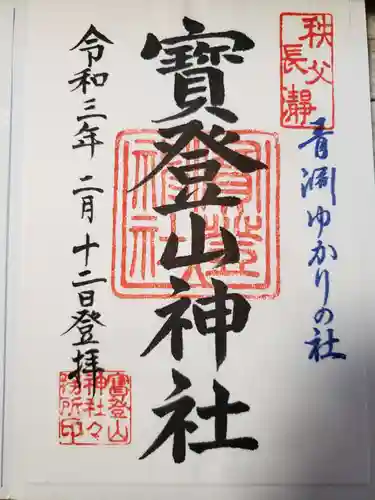 秩父
長瀞
青渕ゆかりの社
寳登山神社
令和三年二月十二日登拝
寳登山
神社々
務所印